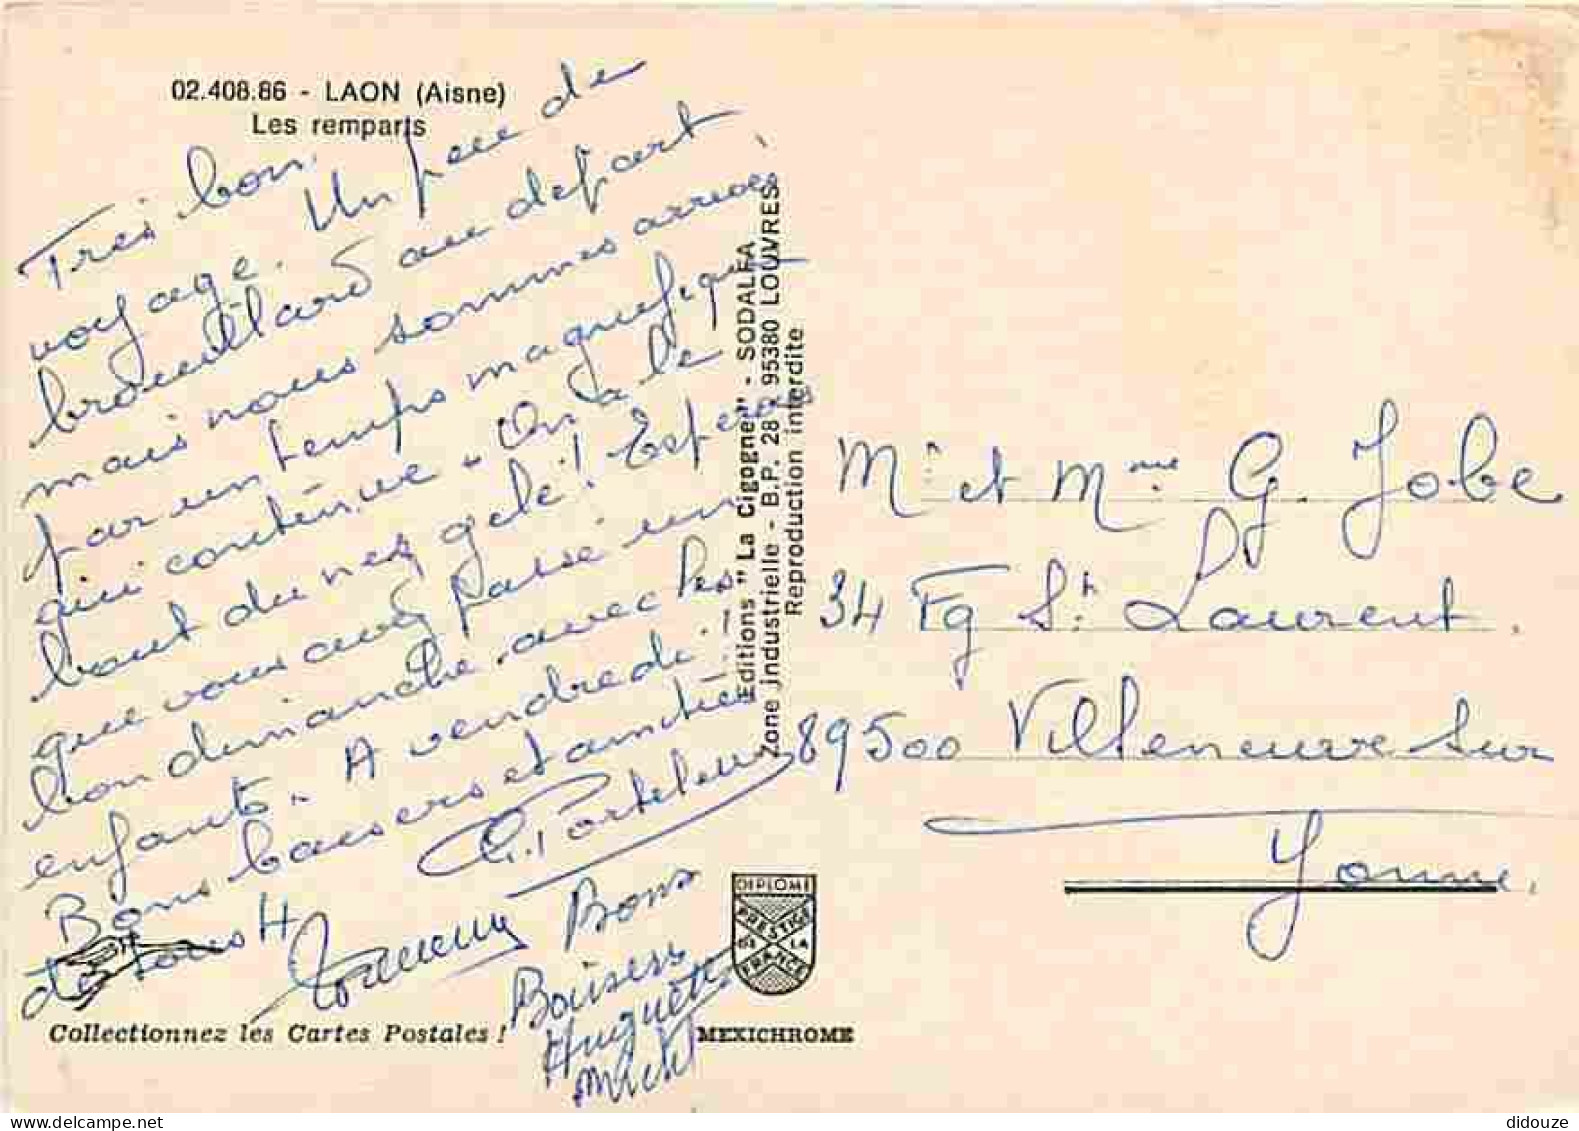 02.408.86 - LAON (Aisne)
Les remparts
Très bon
voyage. Un peu de
brouillard au départ
mais nous sommes arrivés
par un temps magnifique
qui continue - On a le
bout du nez gelé! Espérons
que vous avez passé un
bon dimanche avec les
enfants. A vendredi!
Bons baisers et amitiés
de tous
G. Porteleur
Bons
Baisers
Huguette
Michel
Editions "La Cigogne" - SODALFA
Zone Jndustrielle - B.P. 28 95380 LOUVRES
Reproduction interdite
Mr et Mme G. Jobe
34 Fg St Laurent.
89500 Villeneuve sur
Yonne.
DIPLOME
PRESTIGE
DE LA
FRANCE
Collectionnez les Cartes Postales !
MEXICHROME
didouze